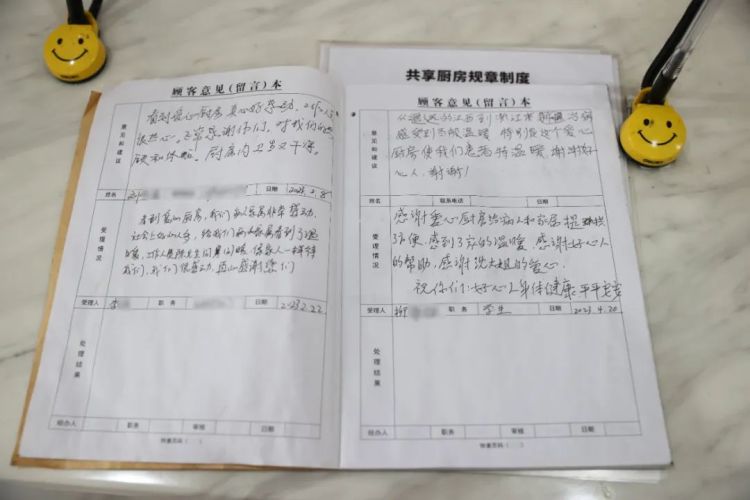 共享厨房规章制度
顾客意见(留言)本
意见和建议
看到爱心厨房真心好感动,
很热心。正常感谢你们,对我们的
厨房内卫生又干净。
姓名
日期
2023.2.8
受理情况
看到爱心厨房,我们病人家属非常感动,
社会上好心人多,给我们病人家属看到了温
暖,工作人员
我们,我们很感动,真心感谢你们
受理人
李
职务
日期
2023.2.22
处理结果
经办人
职务
审核
日期
附意页码( )
顾客意见(留言)本
意见和建议
从遥远的江西到浙江来
感受到了很温暖,特别是这个爱心
厨房使我们感到特温暖,谢谢好
心人,谢谢!
姓名
联系电话
日期
受理情况
感谢爱心厨房给病人和家属提供
了方便,感到了家的温暖,感谢好心人
的帮助,感谢洗大姐的爱心.
祝你们好心人身体健康平平安安
受理人
柳
职务
学生
日期
2023.4.20
处理结果
经办人
职务
审核
日期
附意页码( )